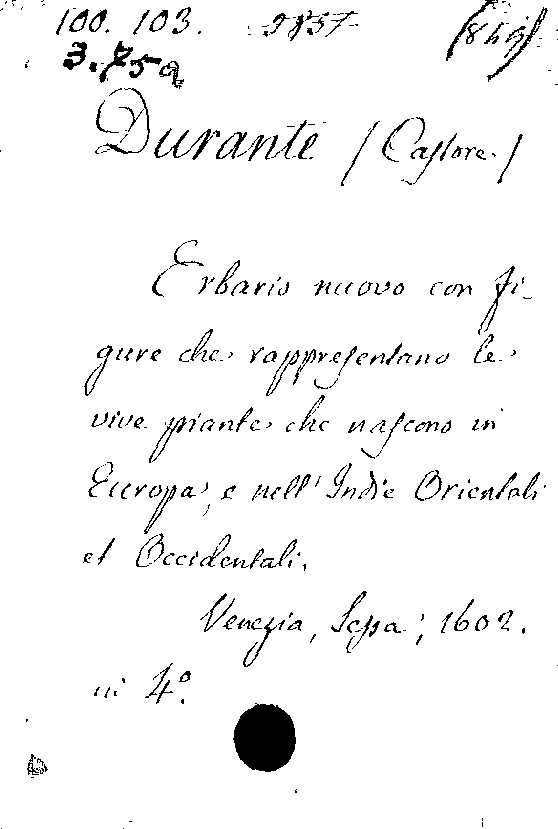 100. 103. 2857 (849)
3.75a
Durante (Castore.)
Erbario nuovo con fi-
gure che rappresentano le
vive piante che nascono in
Europa, e nell' Indie Orientali
et Occidentali.
Venezia, Sessa, 1602.
in 4º.